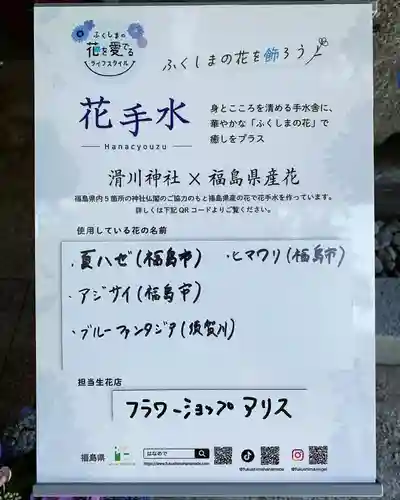 ふくしまの
花を愛でる
ライフスタイル
ふくしまの花を飾ろう
花手水
Hanacyouzu
身とこころを清める手水舎に、
華やかな「ふくしまの花」で
癒しをプラス
滑川神社×福島県産花
福島県内5箇所の神社仏閣のご協力のもと福島県産の花で花手水を作っています。
詳しくは下記QRコードよりご覧ください。
使用している花の名前
・夏ハゼ(福島市)
・ヒマワリ(福島市)
・アジサイ(福島市)
・ブルーファンタジア(須賀川)
担当生花店
フラワーショップアリス
福島県
はなめで
検索